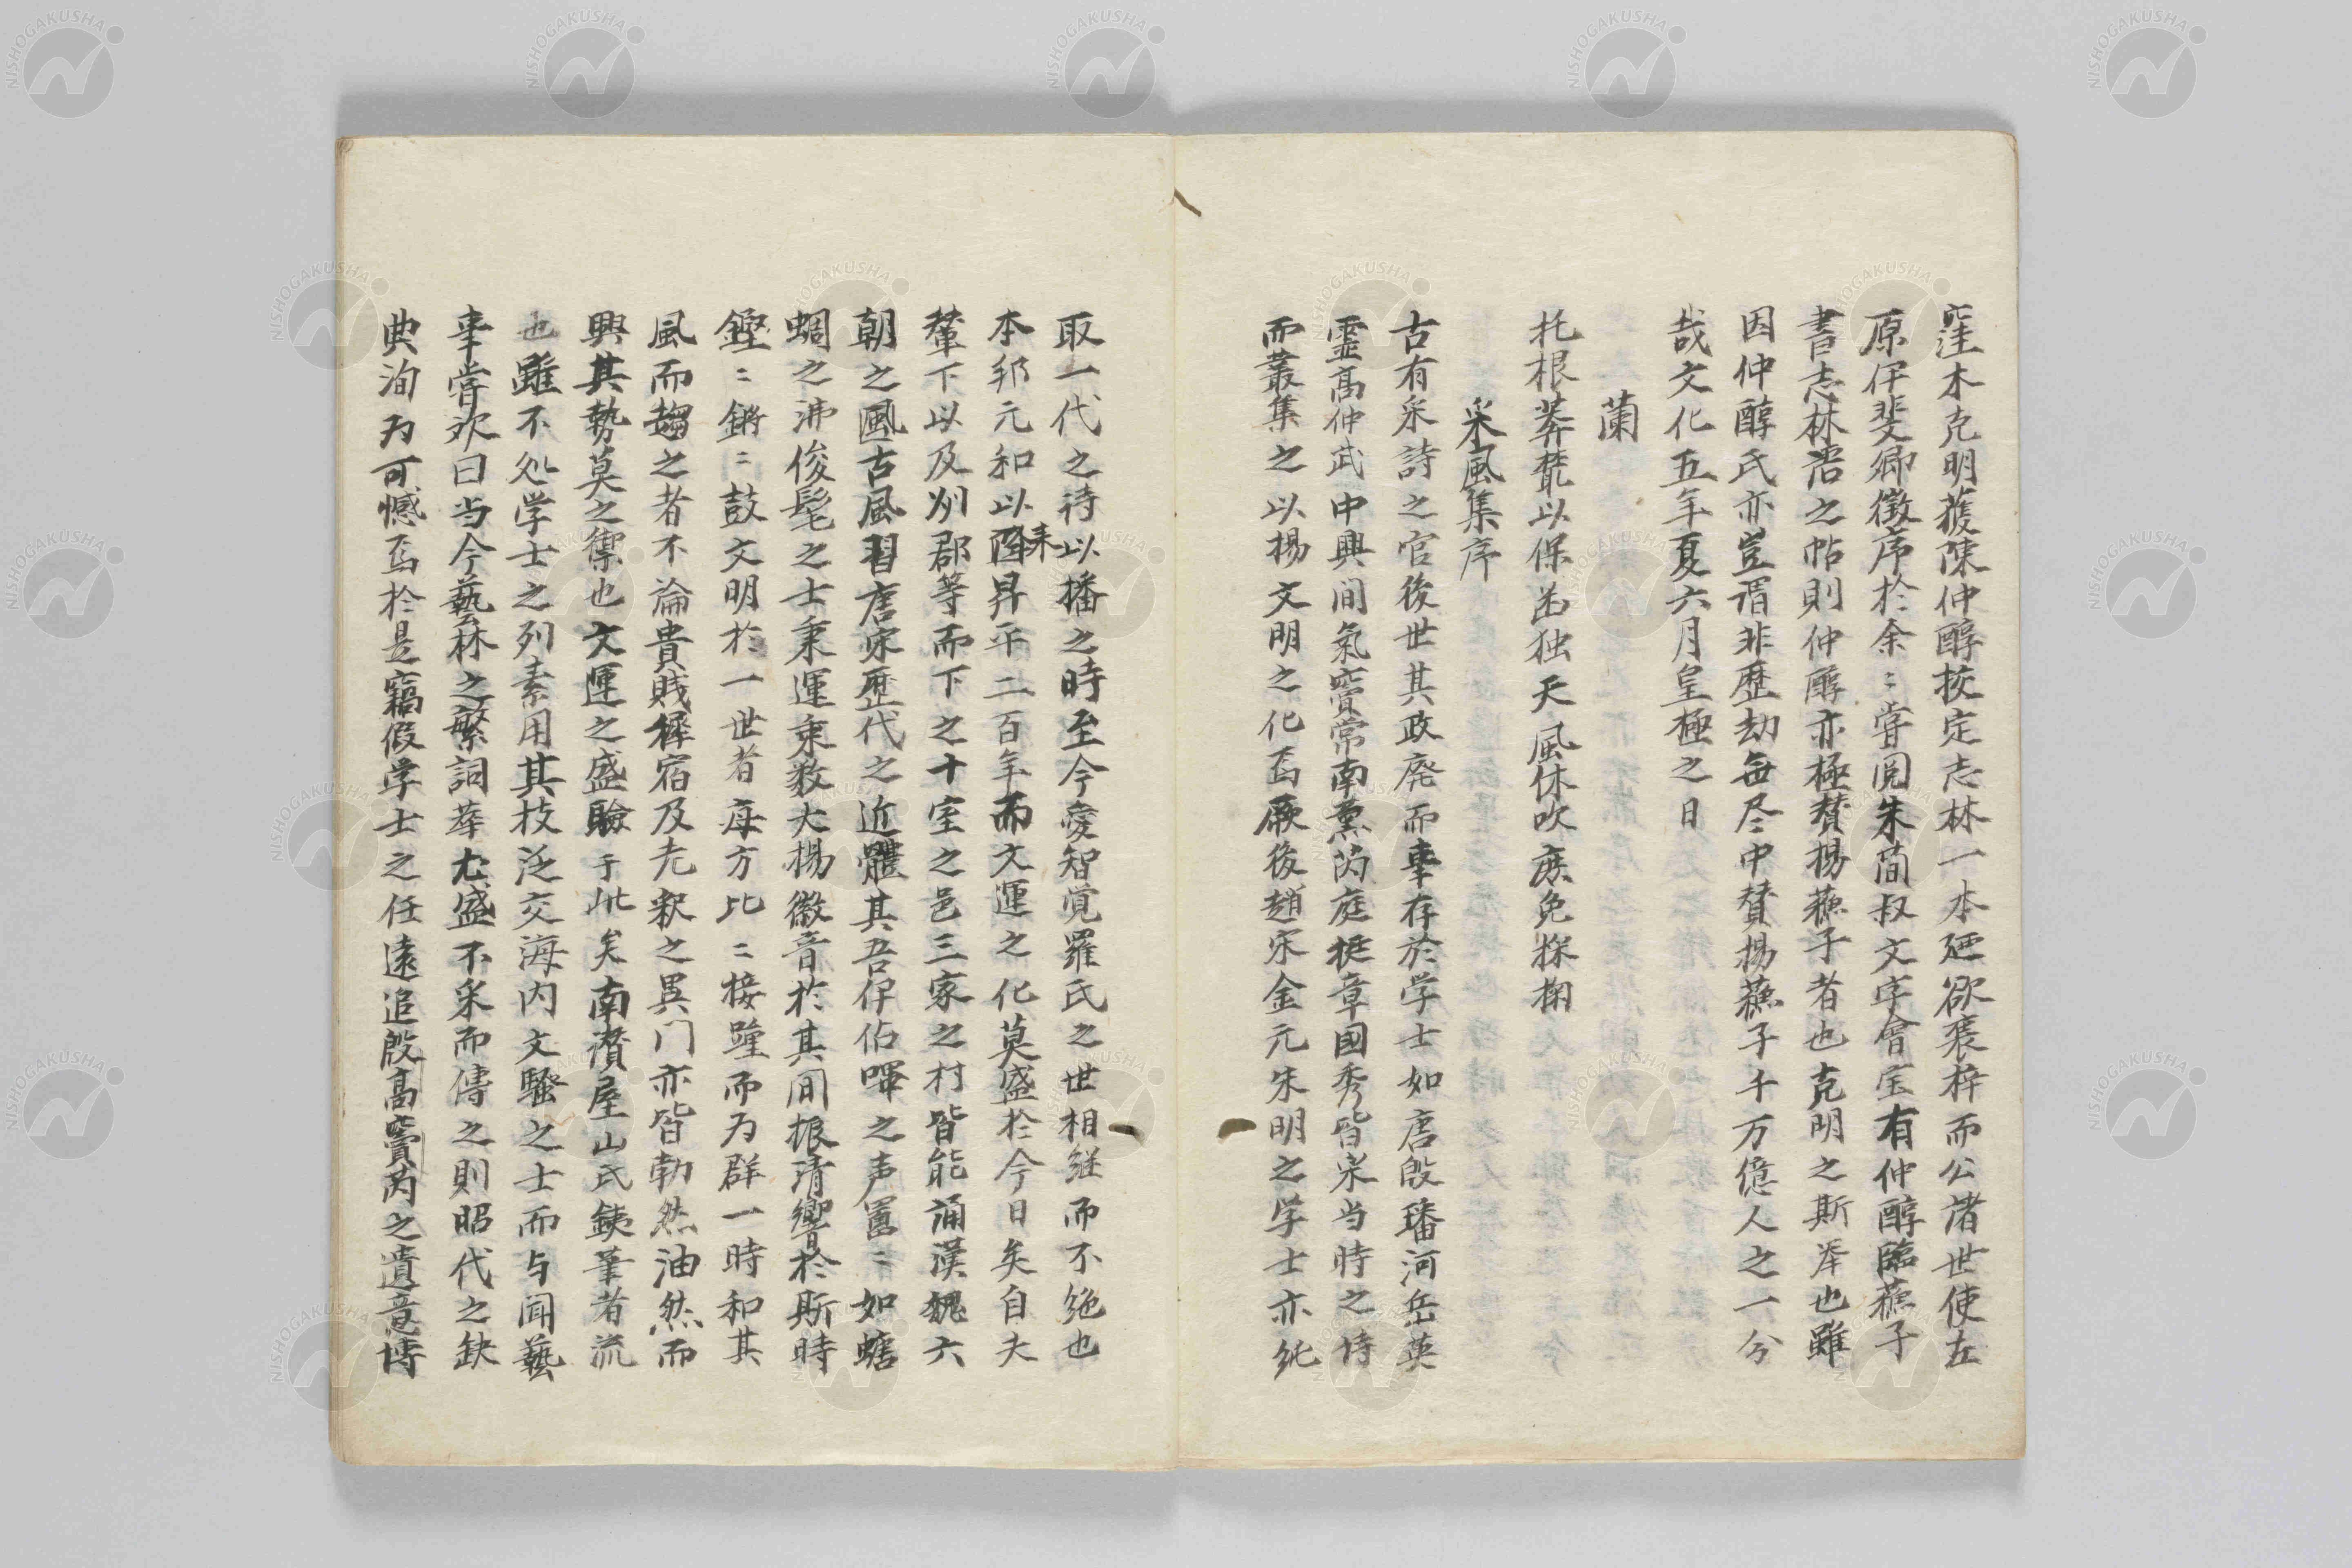 窪木克明獲陳仲醇挍定志林一本廼欲裒梓而公諸世使左
原伊斐卿徴序於余〻嘗閲朱蘭叔文字會宝有仲醇臨蘓子
書志林語之帖則仲醇亦極賛揚蘓子者也克明之斯挙也雖
因仲醇氏亦豈谓非歴劫毎尽中賛揚蘓子千万億人之一分
哉文化五年夏六月皇極之日
蘭
托根莽甃以保幽独天風休吹庶免採掬
采風集序
古有采詩之官後世其政廃而事存於学士如唐殷璠河岳英
霊高仲武中興間氣竇常南薫芮庭挺章國秀皆采当時之詩
而叢集之以揚文明之化焉厥後趙宋金元朱明之学士亦純
取一代之詩以播之時至今愛智覚羅氏之世相継而不绝也
本邦元和以来降昇平二百年而文運之化莫盛於今日矣自夫
輦下以及州郡等而下之十室之邑三家之村皆能誦漢魏六
朝之國古風習唐宋歴代之近體其吾伊佔嗶之声嚚〻如螗
蜩之沸俊髦之士秉運乗数大揚徽音於其间振清響於斯時
鏗〻鏘〻鼓文明於一世者毎方比〻接踵而为群一時和其
風而趨之者不論貴賎穉宿及老釈之異门亦皆勃然油然而
興其勢莫之禦也文運之盛験于此矣南濱屋山氏鉄筆者流
也雖不処学士之列素用其技泛交海内文騒之士而与闻藝
事嘗欢曰当今藝林之繁詞華尤盛不采而傳之則昭代之缺
典洵为可憾焉於是竊假学士之任遠追殷高竇芮之遺意博